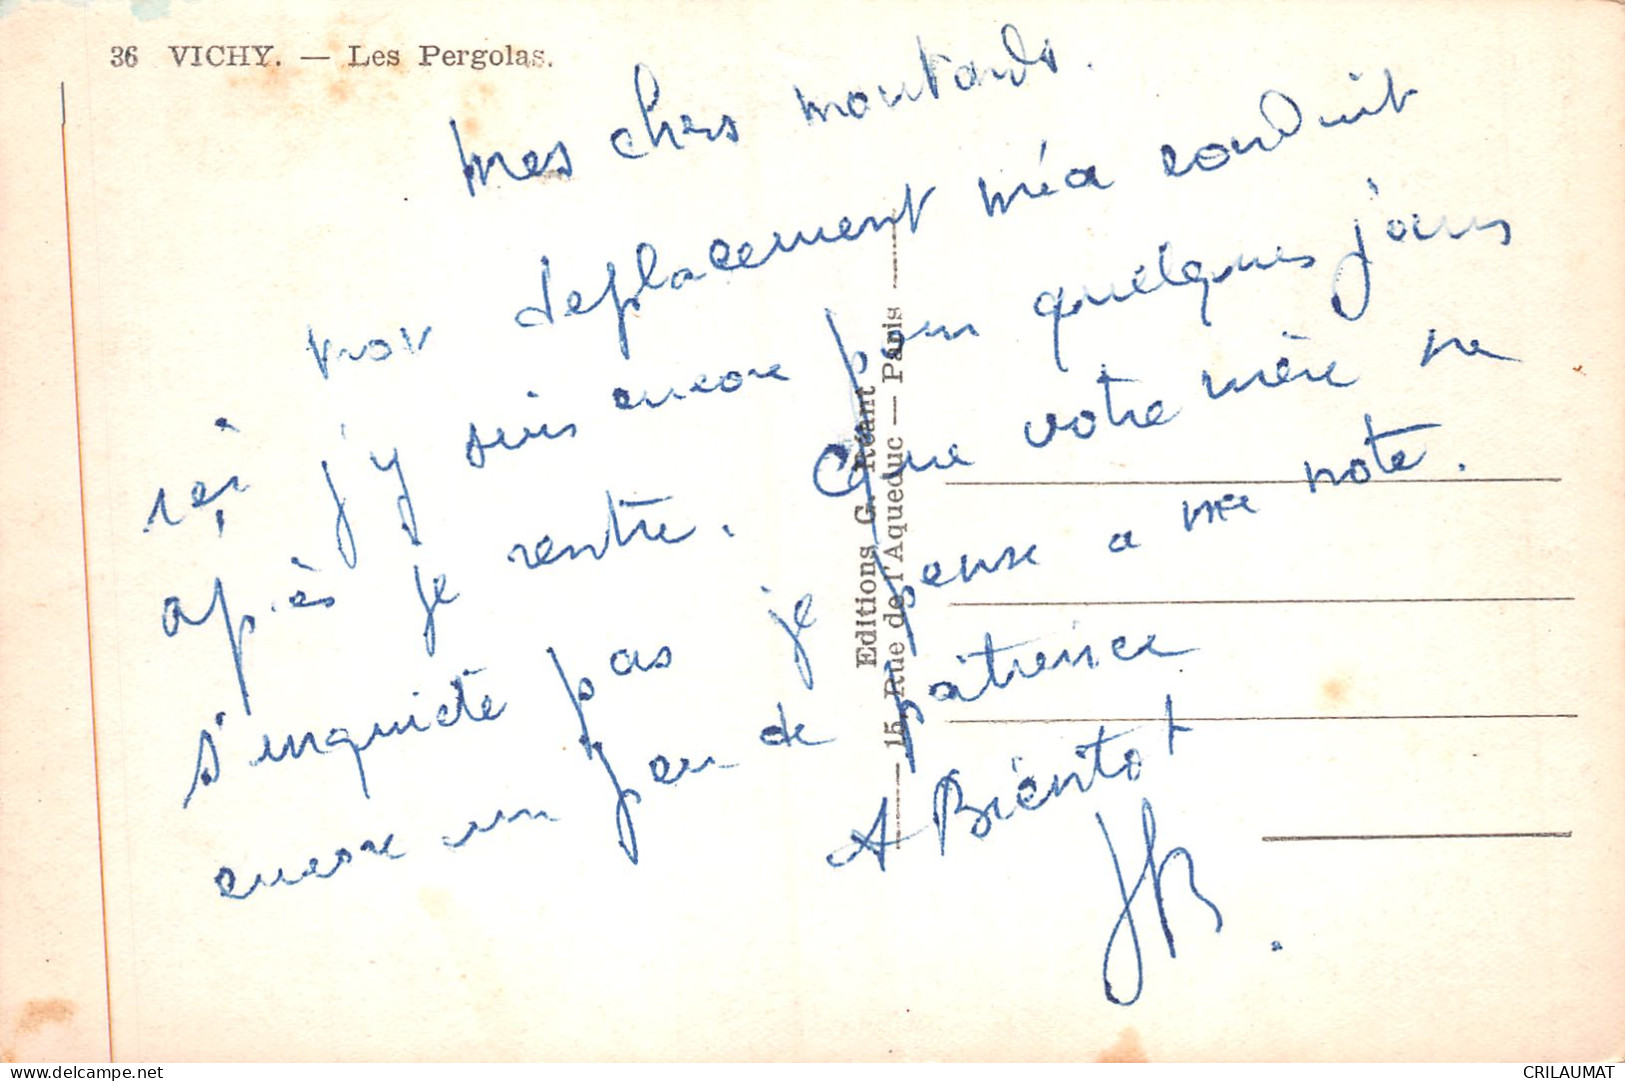 36 VICHY. — Les Pergolas.
mes chers moutards.
mon deplacement m'a conduit
ici j'y suis encore pour quelques jours
après je rentre. Que votre mère ne
s'inquiète pas je pense a ma note.
encore un peu de patience
A Bientot
JB.
Editions G. Réant
15, Rue de l'Aqueduc — Paris
www.delcampe.net
CRILAUMAT